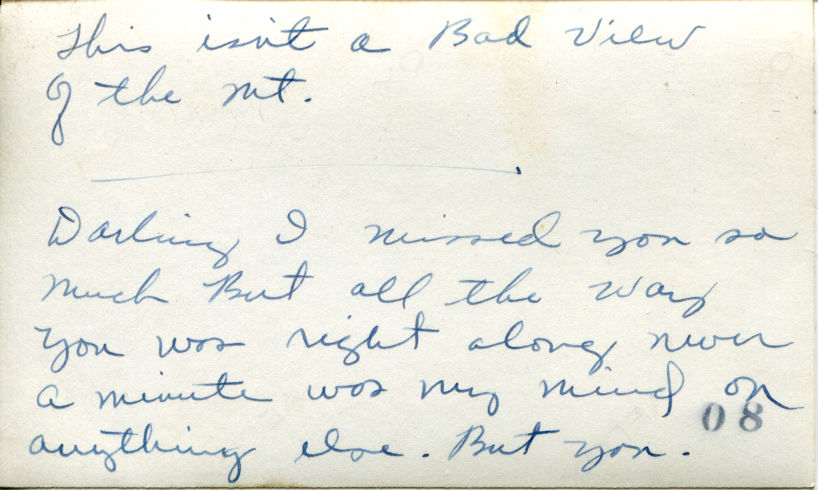 This isn't a Bad View
of the Mt.
Darling I missed you so
much But all the way
you was right along never
a minute was my mind on
anything else. But you.
08